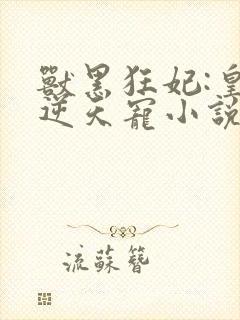 獸黑狂妃:皇
逆天寵小說
流蘇簪